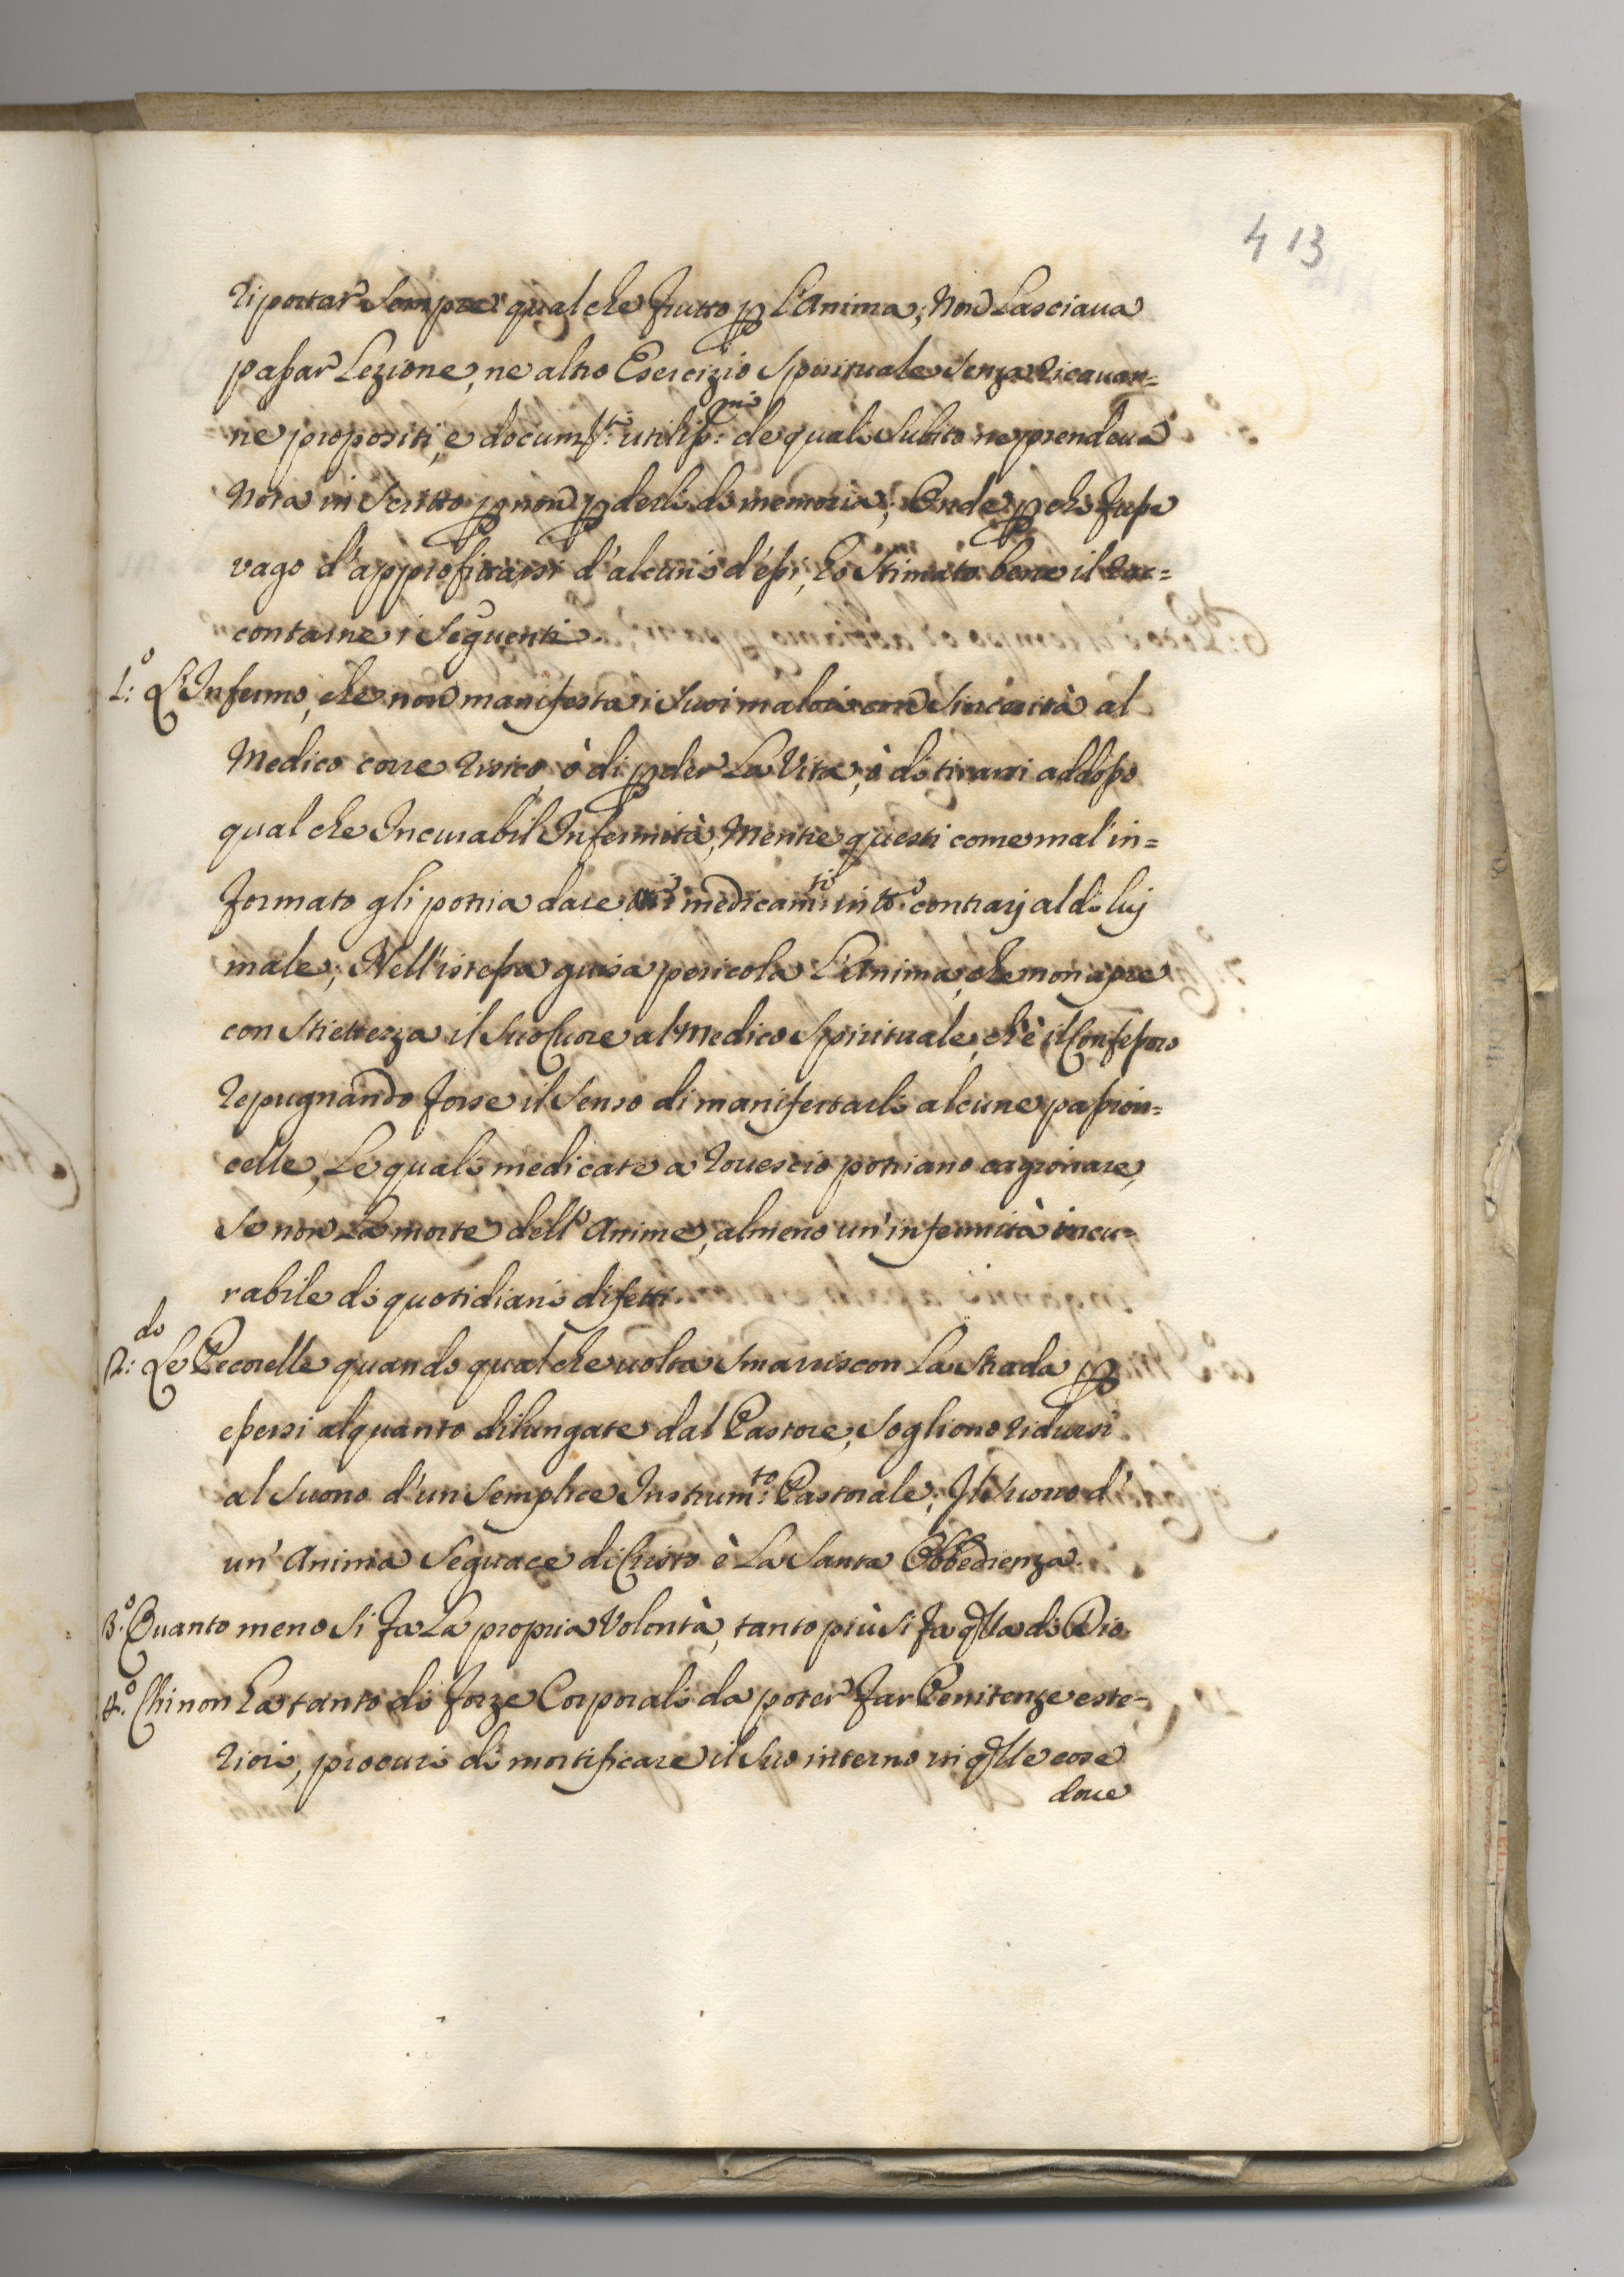 413
riportar sempre qualche frutto p l'Anima; Non lasciaua
passar Lezione, ne altro Esercizio Spirituale senza ricauar=
ne propositi, e docum:ti utiliss:mi de quali subito ne prendeua
Nota in Scritto p non pderli di memoria; Onde p chi fusse
vago d'approfitarsi d'alcuni d'essi, ho stimato bene il rac=
contarne i seguenti
1:o L'Infermo, che non manifesta i suoi malori con sincerità al
Medico corre risico, ò di pder la Vita, ò di tirarsi addosso
qualche Incurabil Infermità, Mentre questi come mal'in=
formato gli potria dare medicam:ti in tto contrarij al di luj
male; Nell'istessa guisa pericola L'Anima, che non apre
con schiettezza il suo Cuore al Medico Spirituale, ch'è il Confessore
repugnando forse il senso di manifestarli alcune passion=
celle, Le quali medicate a rouescio potriano cagionare,
se non la morte dell'Anime, almeno un'infermità incu=
rabile di quotidiani difetti.
2:do Le Pecorelle quando qualche uolta smarriscon la strada p
essersi alquanto dilungate dal Pastore, sogliono ridursi
al suono d'un semplice Instrum:to Pastorale; Il suono d'
un'Anima seguace di Christo è La Santa Obbedienza.
3.o Quanto meno si fa La propria Volontà, tanto più si fa qlla di Dio.
4.o Chi non ha tanto di forze Corporali da poter far Penitenze este=
riori, procuri di mortificare il suo interno in qlle cose
doue